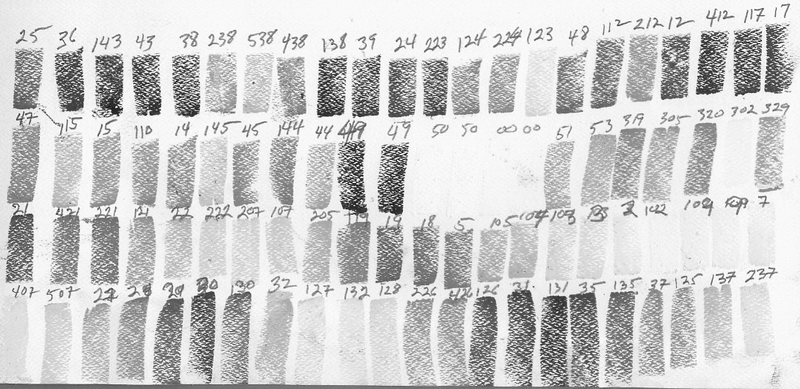 25 36 143 43 38 238 538 438 138 39 24 223 124 224 123 48 112 212 12 412 117 17
47 115 15 110 14 145 45 144 44 49 50 50 00 00 51 53 319 305 320 302 329
21 421 221 121 22 222 207 107 205 19 18 5 105 103 2 102 7
407 507 30 130 32 127 132 128 226 126 31 131 35 135 37 125 137 237